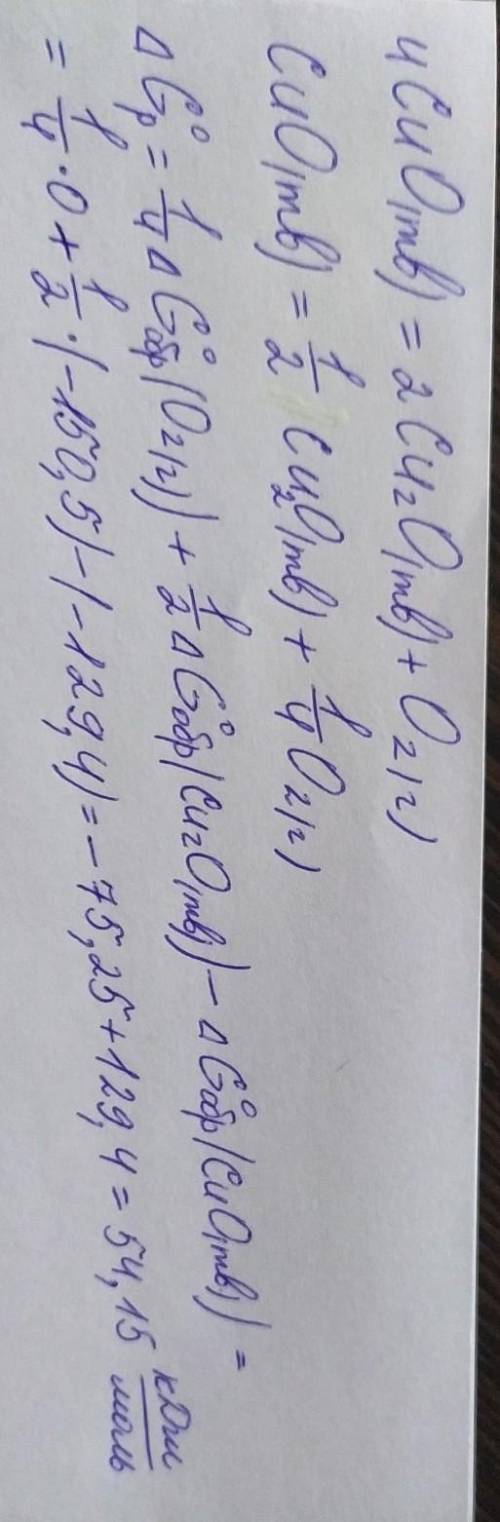 4CuO(тв) = 2Cu₂O(тв) + O₂(г)
CuO(тв) = 1/2 Cu₂O(тв) + 1/4 O₂(г)
ΔG°р = 1/4 ΔG°обр(O₂(г)) + 1/2 ΔG°обр(Cu₂O(тв)) − ΔG°обр(CuO(тв)) =
= 1/4 · 0 + 1/2 · (−150,5) − (−129,4) = −75,25 + 129,4 = 54,15 кДж/моль